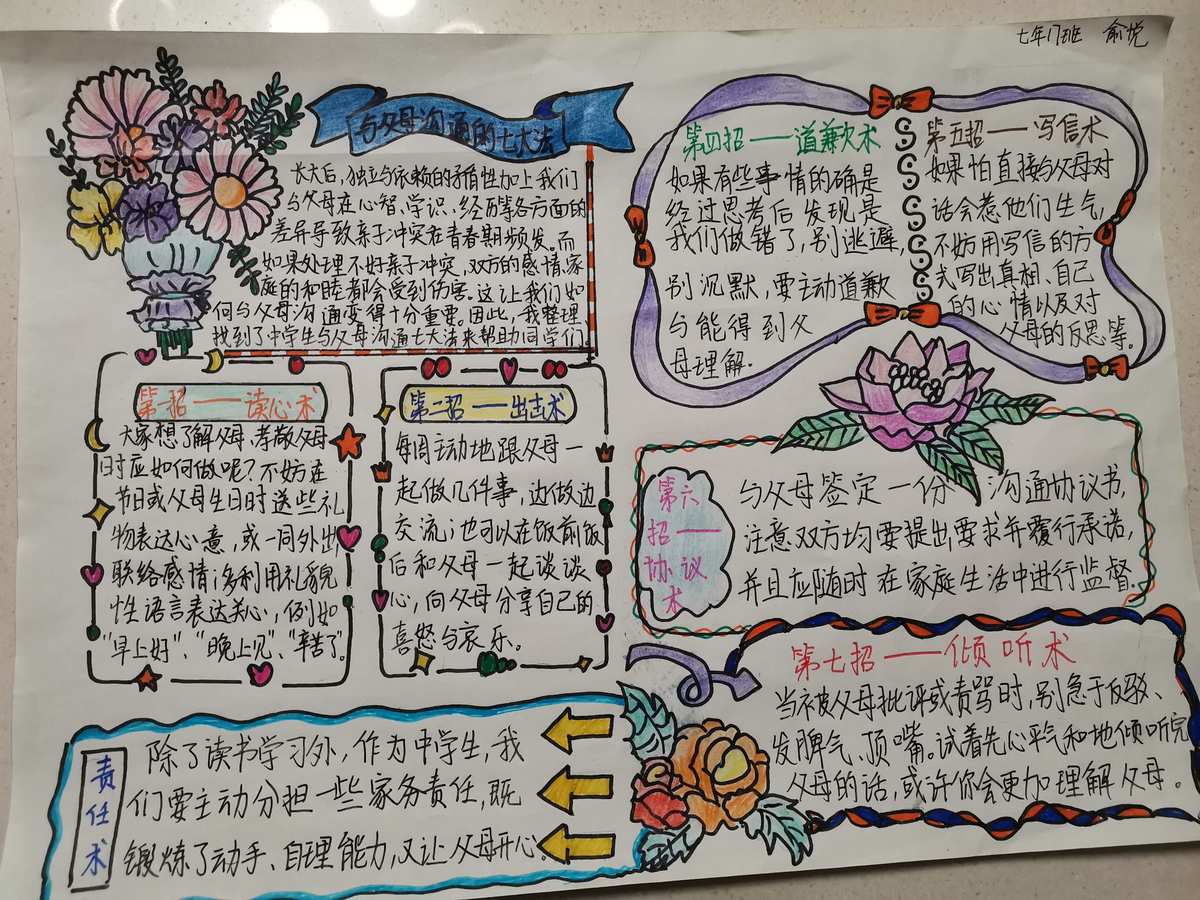 七年17班 俞悦
与父母沟通的七大法
长大后，独立与依赖的矛盾性加上我们
与父母在心智、学识、经历等各方面的
差异导致亲子冲突在青春期频发。而
如果处理不好亲子冲突，双方的感情、家
庭的和睦都会受到伤害。这让我们如
何与父母沟通变得十分重要。因此，我整理
找到了中学生与父母沟通七大法来帮助同学们
第一招——读心术
大家想了解父母、孝敬父母
时应如何做呢？不妨在
节日或父母生日时送些礼
物表达心意，或一同外出
联络感情；多利用礼貌
性语言表达关心，例如
“早上好”、“晚上见”、“辛苦了”。
第二招——出击术
每周主动地跟父母一
起做几件事，边做边
交流；也可以在饭前饭
后和父母一起谈谈
心，向父母分享自己的
喜怒与哀乐。
责任术
除了读书学习外，作为中学生，我
们要主动分担一些家务责任，既
锻炼了动手、自理能力，又让父母开心。
第四招——道歉术
如果有些事情的确是
经过思考后发现是
我们做错了，别逃避，
别沉默，要主动道歉
与能得到父
母理解.
第五招——写信术
如果怕直接与父母对
话会惹他们生气，
不妨用写信的方
式写出真相、自己
的心情以及对
父母的反思等。
第六
招——
协议
术
与父母签定一份沟通协议书，
注意双方均要提出要求并履行承诺，
并且应随时在家庭生活中进行监督.
第七招——倾听术
当被父母批评或责骂时，别急于反驳、
发脾气、顶嘴。试着先心平气和地倾听完
父母的话，或许你会更加理解父母。